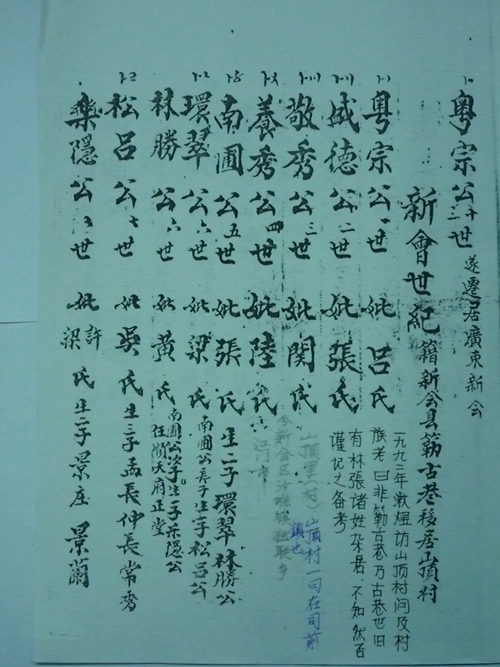 粤宗公十三世 遂遷居廣東新会
新會世紀 籍新会县簕古巷移居山頂村
粤宗公一世 妣 呂氏
一九九二年敦煜訪山頂村问及村
族老曰非簕古巷乃古巷也旧
有林張诸姓杂居.不知然否
谨记之备考
威德公二世 妣 張氏
敬秀公三世 妣 関氏
山頂里(村)
山頂村一句在司前
鎮也
今新会区沙堆镇独联乡
江门市
養秀公四世 妣 陸氏
南圃公五世 妣 張氏 生二子環翠 林勝公
環翠公六世 妣 梁氏 南圃公長子生一子松呂公
林勝公六世 妣 黄氏 南圃公次子生一子乐隱公
任順天府正堂
松呂公七世 妣 吳氏 生三子孟長仲長常秀
樂隱公七世 妣 許梁氏 生二子景庄 景蘭